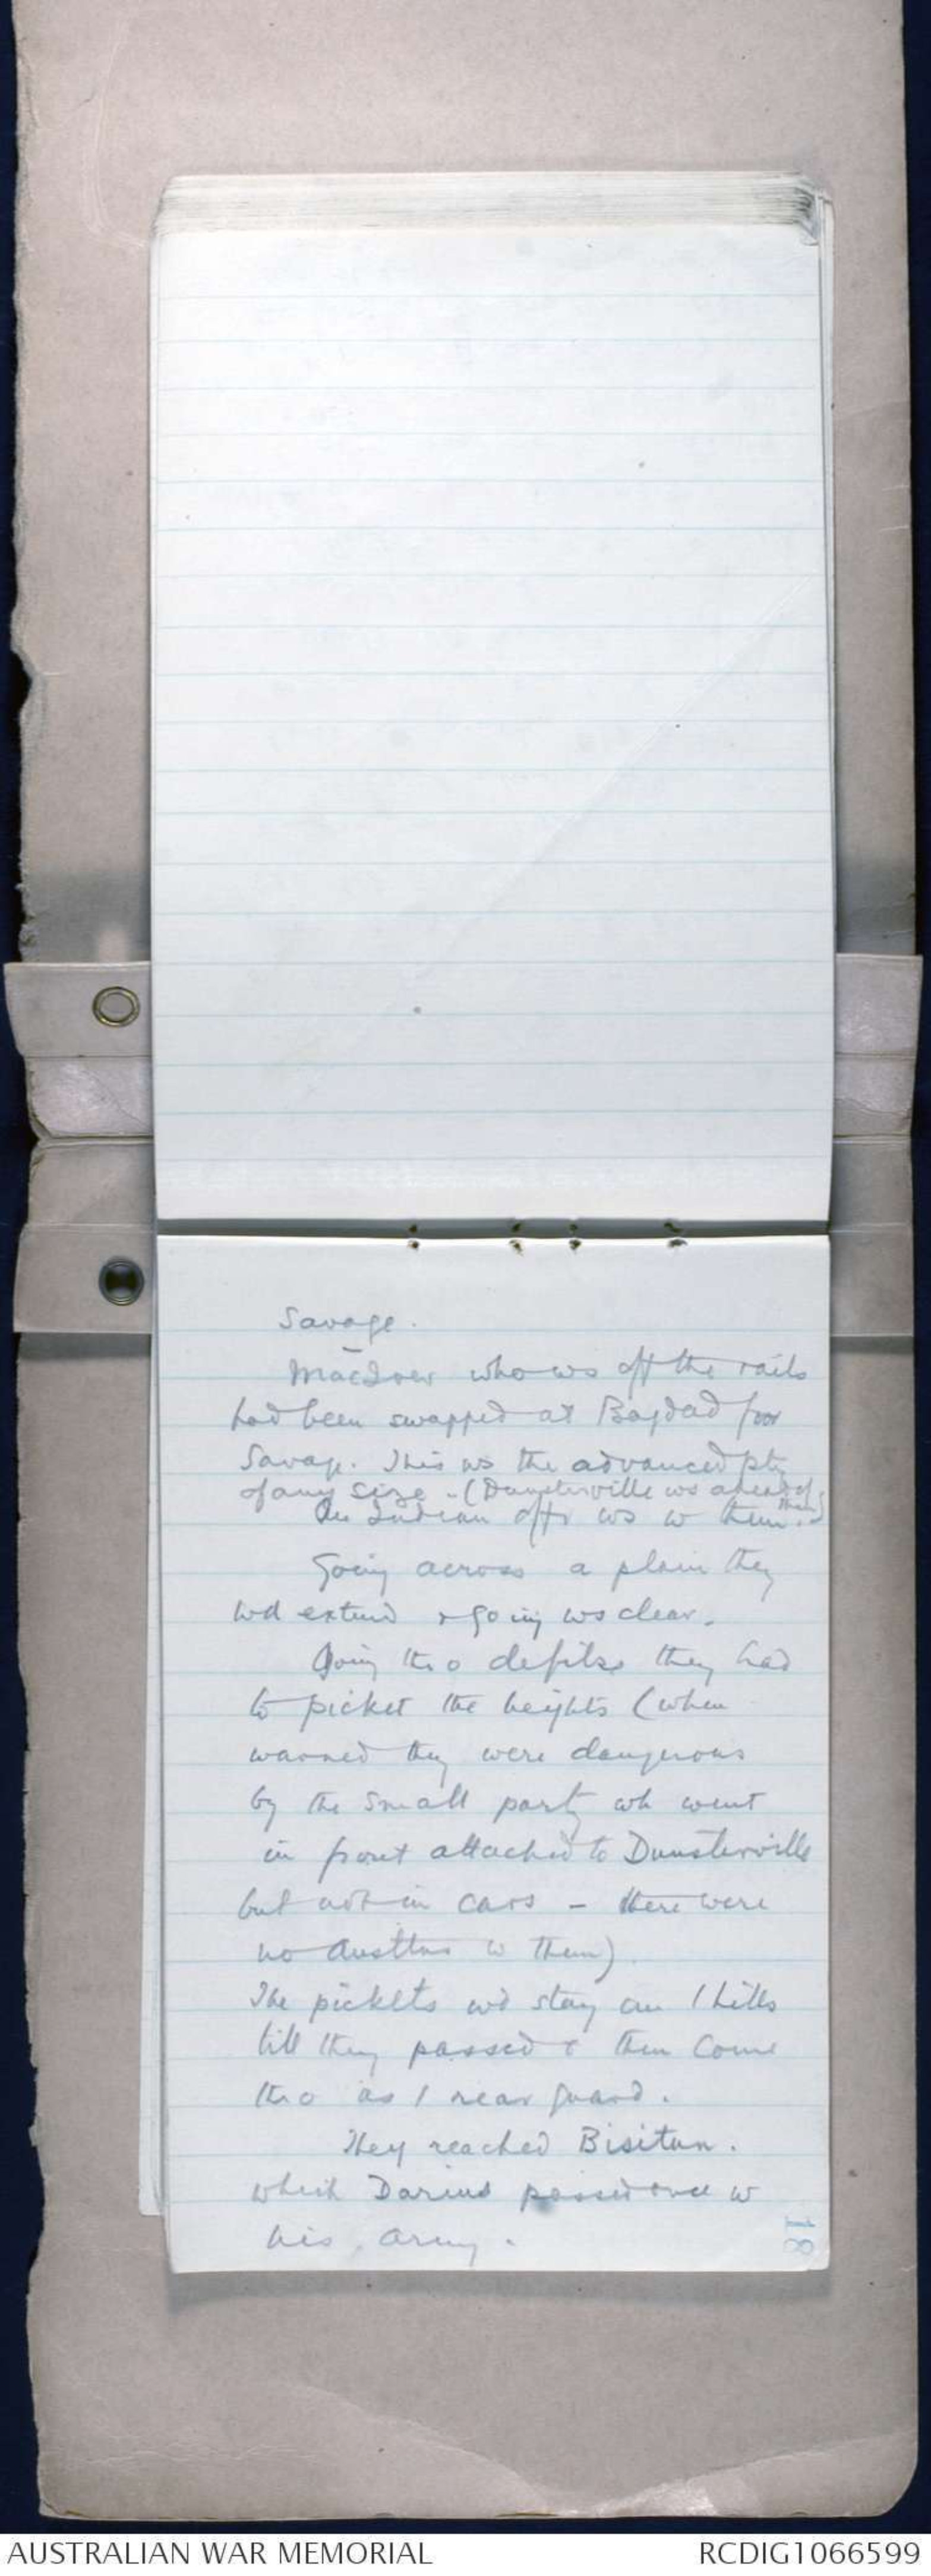 Savage.
MacIver who ws off the rails
had been swapped at Bagdad for
Savage. This ws the advanced pty
of any size. (Dunsterville ws ahead of them)
Indian offr ws w them.
Going across a plain they
wd extend & going ws clear.
Going thro defiles they had
to picket the heights (when
warned they were dangerous
by the small party wh went
in front attached to Dunsterville
but not in cars - there were
no Austlns w them)
The pickets wd stay on / hills
till they passed & then come
thro as / rear guard.
They reached Bisitun.
which Darius passed once w
his army.
81
AUSTRALIAN WAR MEMORIAL
RCDIG1066599